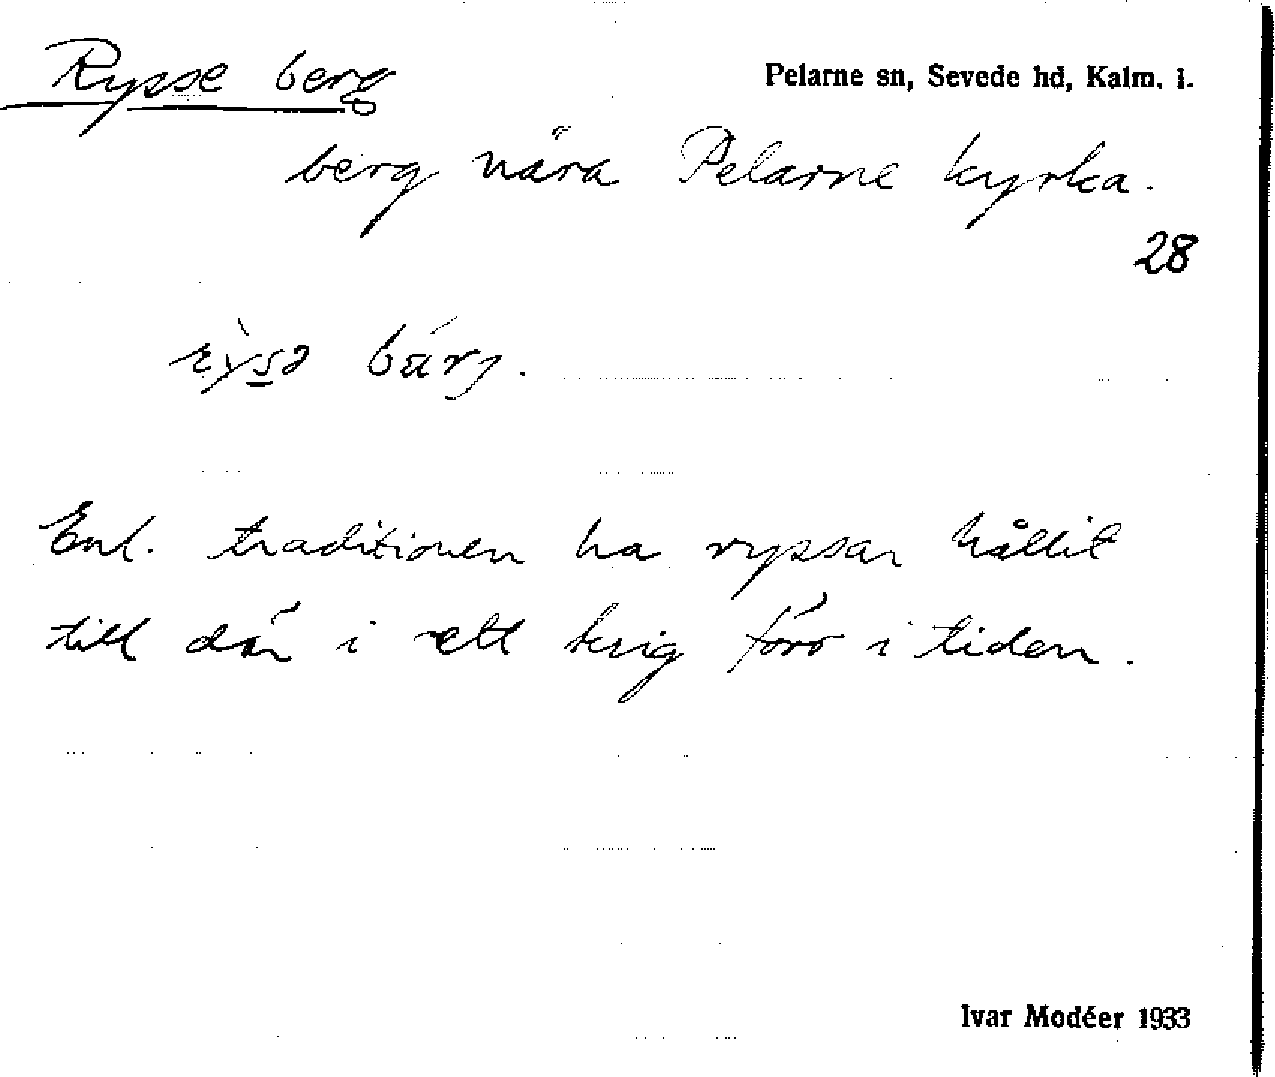 Rysse berg
Pelarne sn, Sevede hd, Kalm. l.
berg nära Pelarne kyrka.
28
Enl. traditionen ha ryssar hållit
till där i ett krig förr i tiden.
Ivar Modéer 1933